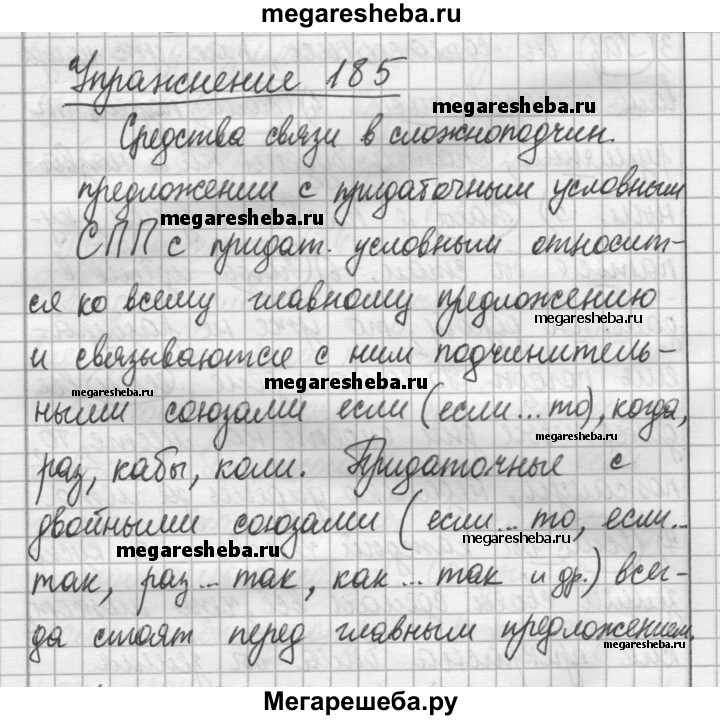 megaresheba.ru
Упражнение 185
megaresheba.ru
Средства связи в сложноподчин.
предложении с придаточным условным
megaresheba.ru
СПП с придат. условным относит-
ся ко всему главному предложению
megaresheba.ru
и связываются с ним подчинитель-
megaresheba.ru
megaresheba.ru
ными союзами если (если... то), когда,
megaresheba.ru
раз, кабы, коли. Придаточные с
двойными союзами (если... то, если..
megaresheba.ru
megaresheba.ru
так, раз... так, как... так и др.) всег-
да стоят перед главным предложением.
megaresheba.ru
Мегарешеба.ру